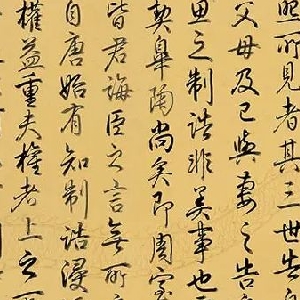 照所見者其三世告
父母及己與妻之告
思之制誥非美事也
契皋陶尚矣即周室
皆君誨臣之言無所
自唐始有知制誥浸
權益重夫權者上之